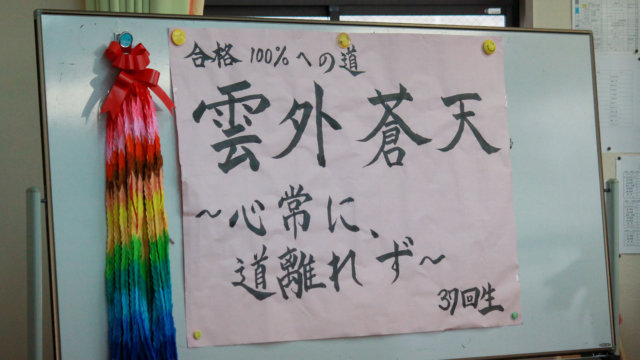 合格 100% への道
雲外蒼天
~心常に、
道離れず~
37回生